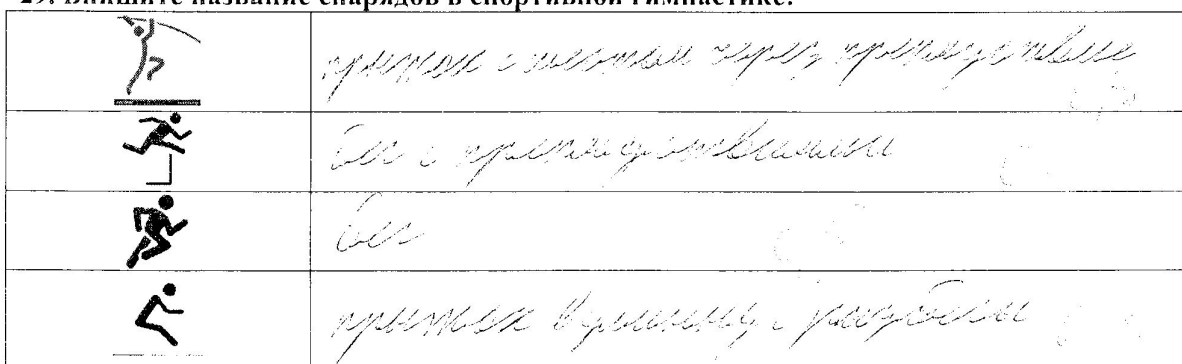 29. Впишите название снарядов в спортивной гимнастике:
прыжок с шестом через препятствие
бег с препятствиями
бег
прыжок в длинну с разбега